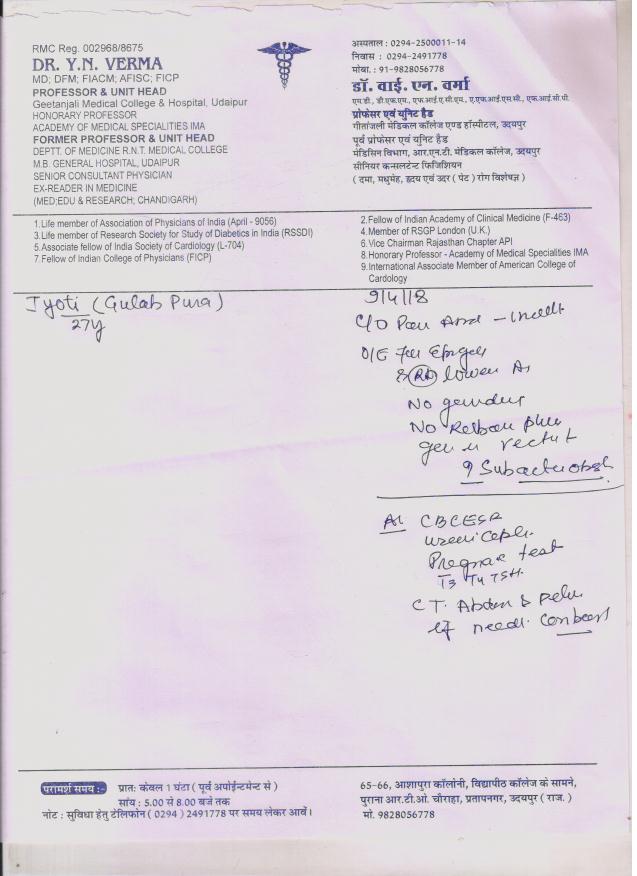 RMC Reg. 002968/8675
DR. Y.N. VERMA
MD; DFM; FIACM; AFISC; FICP
PROFESSOR & UNIT HEAD
Geetanjali Medical College & Hospital, Udaipur
HONORARY PROFESSOR
ACADEMY OF MEDICAL SPECIALITIES IMA
FORMER PROFESSOR & UNIT HEAD
DEPTT. OF MEDICINE R.N.T. MEDICAL COLLEGE
M.B. GENERAL HOSPITAL, UDAIPUR
SENIOR CONSULTANT PHYSICIAN
EX-READER IN MEDICINE
(MED;EDU & RESEARCH; CHANDIGARH)
अस्पताल : 0294-2500011-14
निवास : 0294-2491778
मोबा. : 91-9828056778
डॉ. वाई. एन. वर्मा
एम.डी., डी.एफ.एम., एफ.आई.ए.सी.एम., ए.एफ.आई.एस.सी., एफ.आई.सी.पी.
प्रोफेसर एवं यूनिट हैड
गीतांजली मेडिकल कॉलेज एण्ड हॉस्पीटल, उदयपुर
पूर्व प्रोफेसर एवं यूनिट हैड
मेडिसिन विभाग, आर.एन.टी. मेडिकल कॉलेज, उदयपुर
सीनियर कन्सलटेन्ट फिजिशियन
( दमा, मधुमेह, हृदय एवं उदर ( पेट ) रोग विशेषज्ञ )
1.Life member of Association of Physicians of India (April - 9056)
3.Life member of Research Society for Study of Diabetics in India (RSSDI)
5.Associate fellow of India Society of Cardiology (L-704)
7.Fellow of Indian College of Physicians (FICP)
2.Fellow of Indian Academy of Clinical Medicine (F-463)
4.Member of RSGP London (U.K.)
6.Vice Chairman Rajasthan Chapter API
8.Honorary Professor - Academy of Medical Specialities IMA
9.International Associate Member of American College of
Cardiology
Jyoti (Gulab Pura)
27y
9/4/18
C/O Pain
O/E
lower
No
No
? 
CBC ESR
test
T3 T4 TSH
C.T. Abdom &
if need
परामर्श समय :-
प्रातः केवल 1 घंटा ( पूर्व अपोईन्टमेन्ट से )
सांय : 5.00 से 8.00 बजे तक
नोट : सुविधा हेतु टेलिफोन ( 0294 ) 2491778 पर समय लेकर आवें।
65-66, आशापुरा कॉलोनी, विद्यापीठ कॉलेज के सामने,
पुराना आर.टी.ओ. चौराहा, प्रतापनगर, उदयपुर ( राज. )
मो. 9828056778